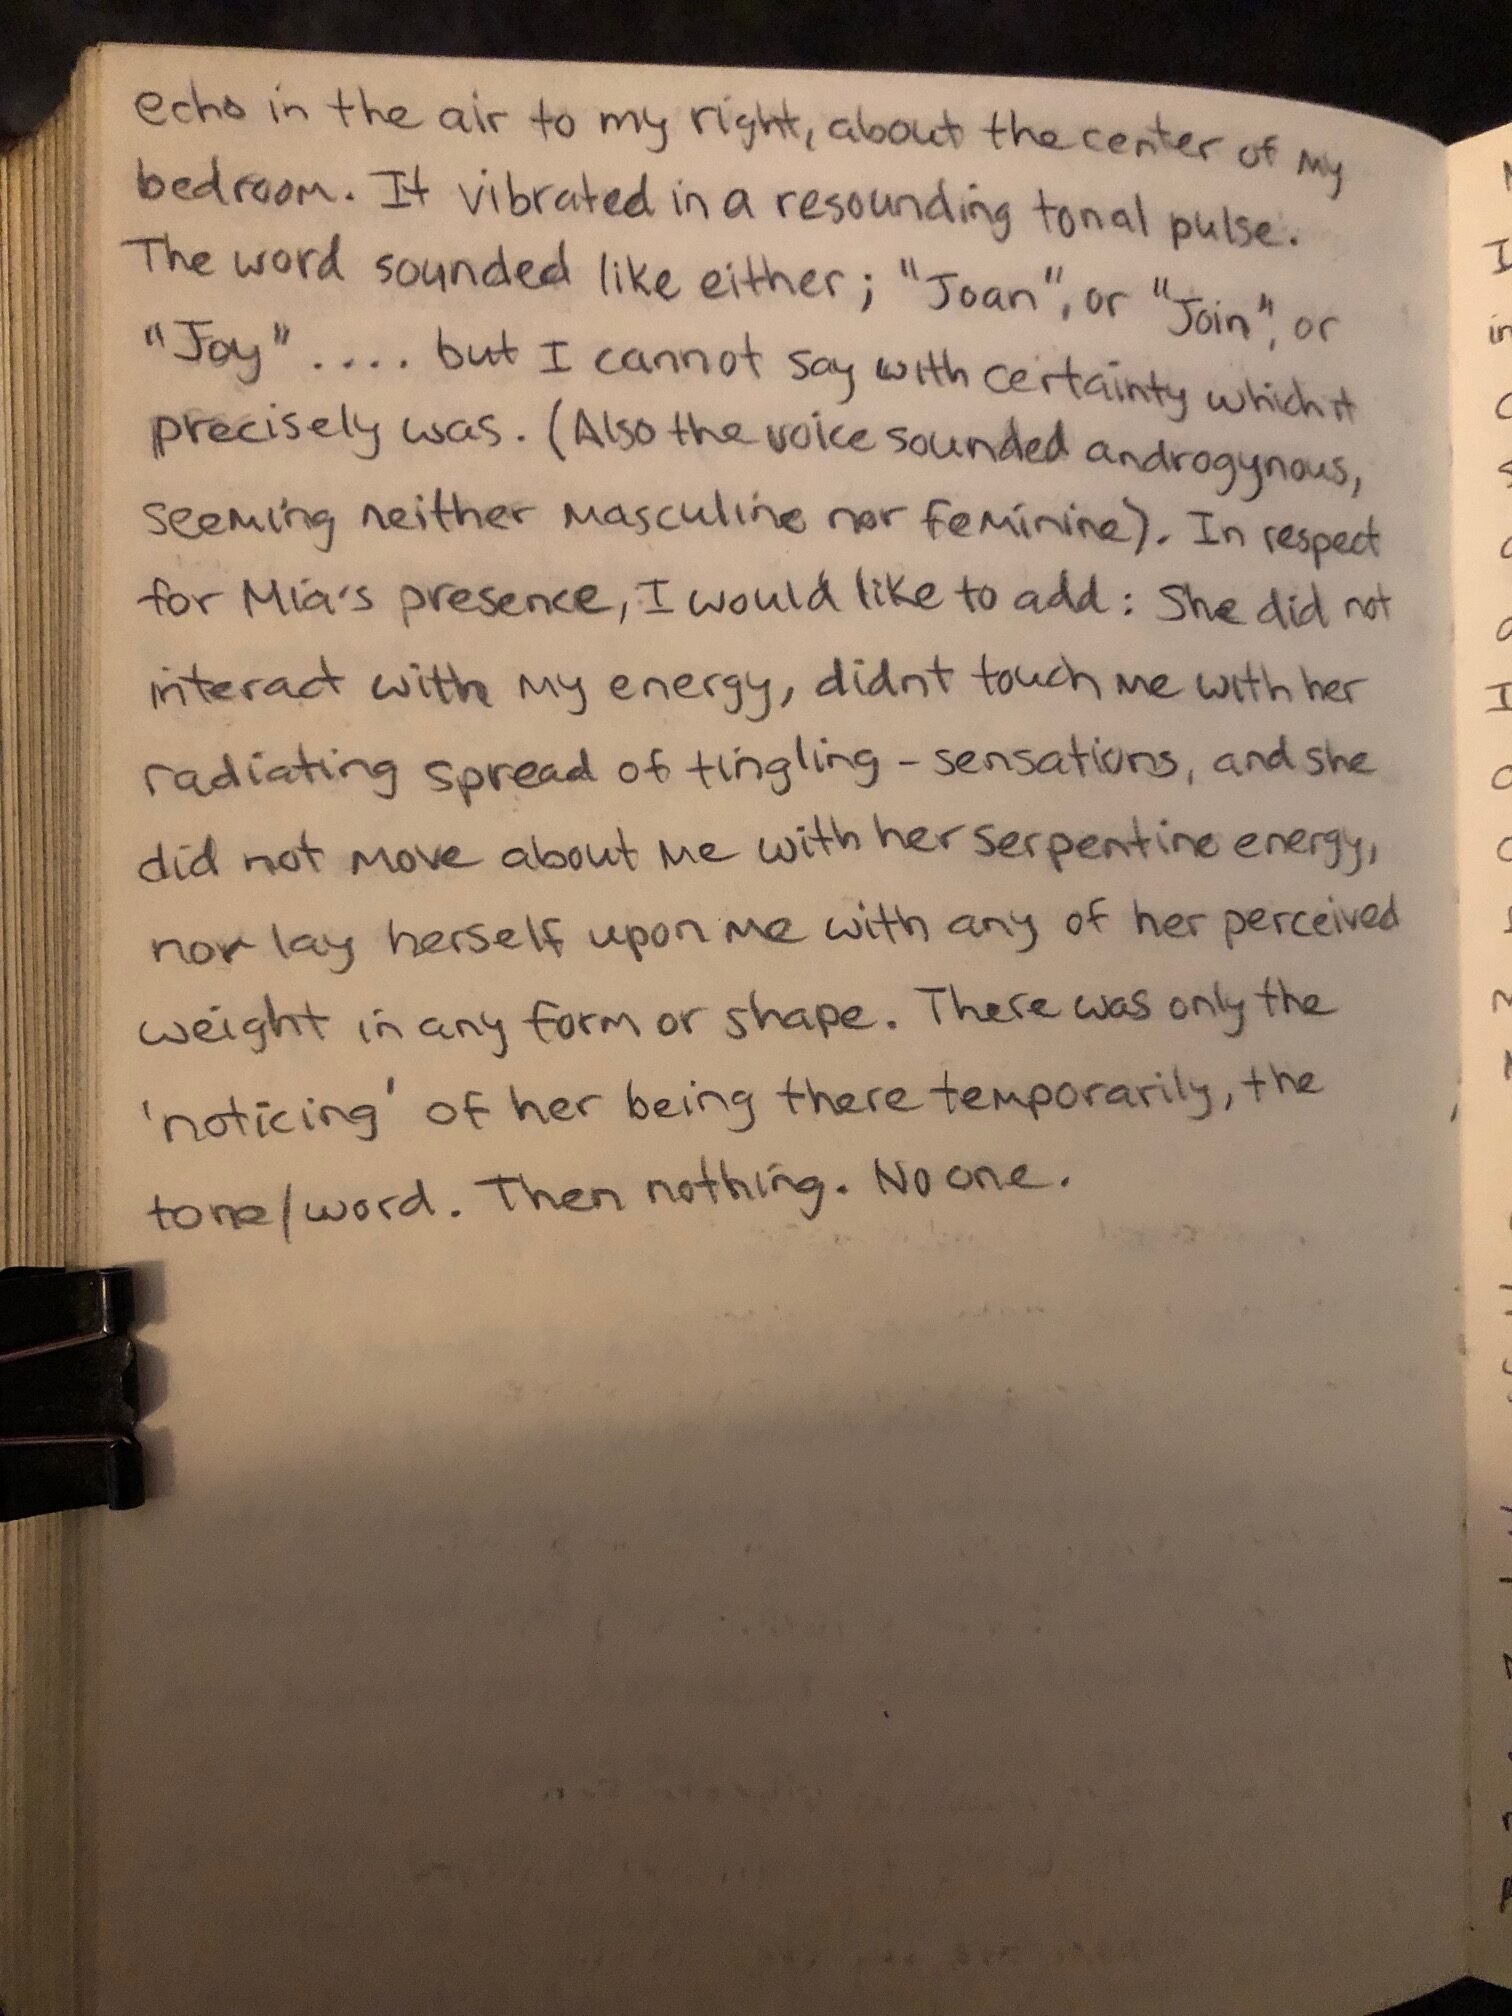 echo in the air to my right, about the center of my
bedroom. It vibrated in a resounding tonal pulse.
The word sounded like either; "Joan", or "Join", or
"Joy" .... but I cannot say with certainty which it
precisely was. (Also the voice sounded androgynous,
seeming neither masculine nor feminine). In respect
for Mia's presence, I would like to add: She did not
interact with my energy, didnt touch me with her
radiating spread of tingling - sensations, and she
did not move about me with her serpentine energy,
nor lay herself upon me with any of her perceived
weight in any form or shape. There was only the
'noticing' of her being there temporarily, the
tone/word. Then nothing. No one.